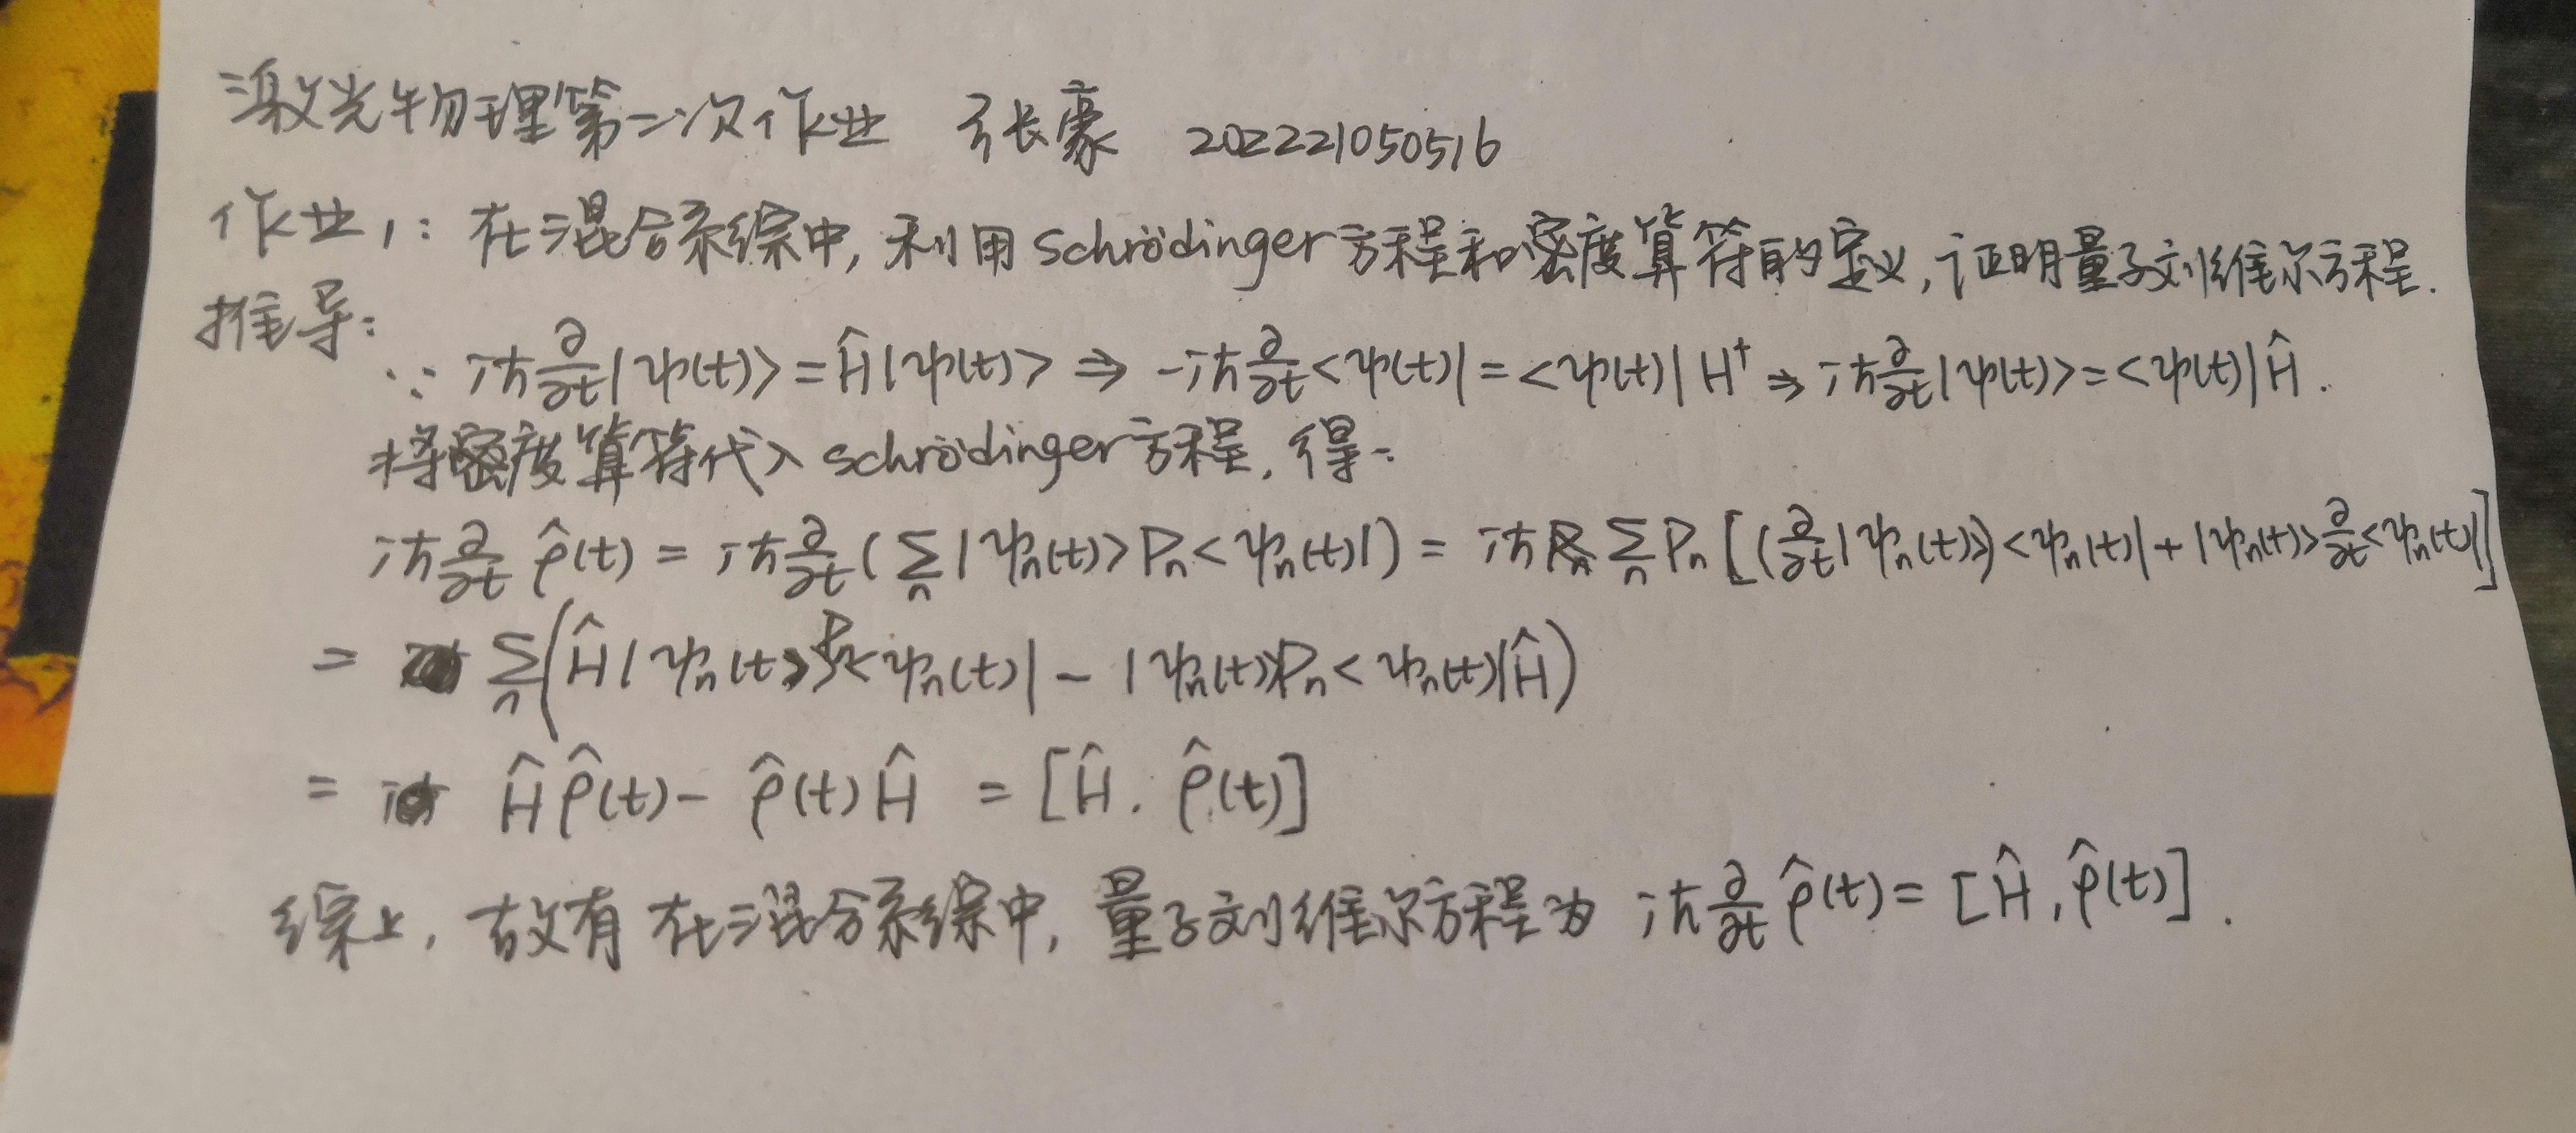 激光物理第二次作业 张豪 202221050516
作业1: 在混合系综中, 利用Schrödinger方程和密度算符的定义, 证明量子刘维尔方程.
推导:
∵ iħ ∂/∂t |ψ(t)> = Ĥ|ψ(t)> ⇒ -iħ ∂/∂t <ψ(t)| = <ψ(t)| H† ⇒ iħ ∂/∂t |ψ(t)> = <ψ(t)|Ĥ.
将密度算符代入 schrödinger方程, 得:
iħ ∂/∂t ρ̂(t) = iħ ∂/∂t (∑n |ψn(t)> Pn <ψn(t)|) = iħ ∑n Pn [(∂/∂t |ψn(t)>) <ψn(t)| + |ψn(t)> ∂/∂t <ψn(t)|]
= ∑n (Ĥ|ψn(t)> Pn <ψn(t)| - |ψn(t)> Pn <ψn(t)|Ĥ)
= Ĥρ̂(t) - ρ̂(t)Ĥ = [Ĥ. ρ̂(t)]
综上, 故有 在混合系综中, 量子刘维尔方程为 iħ ∂/∂t ρ̂(t) = [Ĥ, ρ̂(t)].